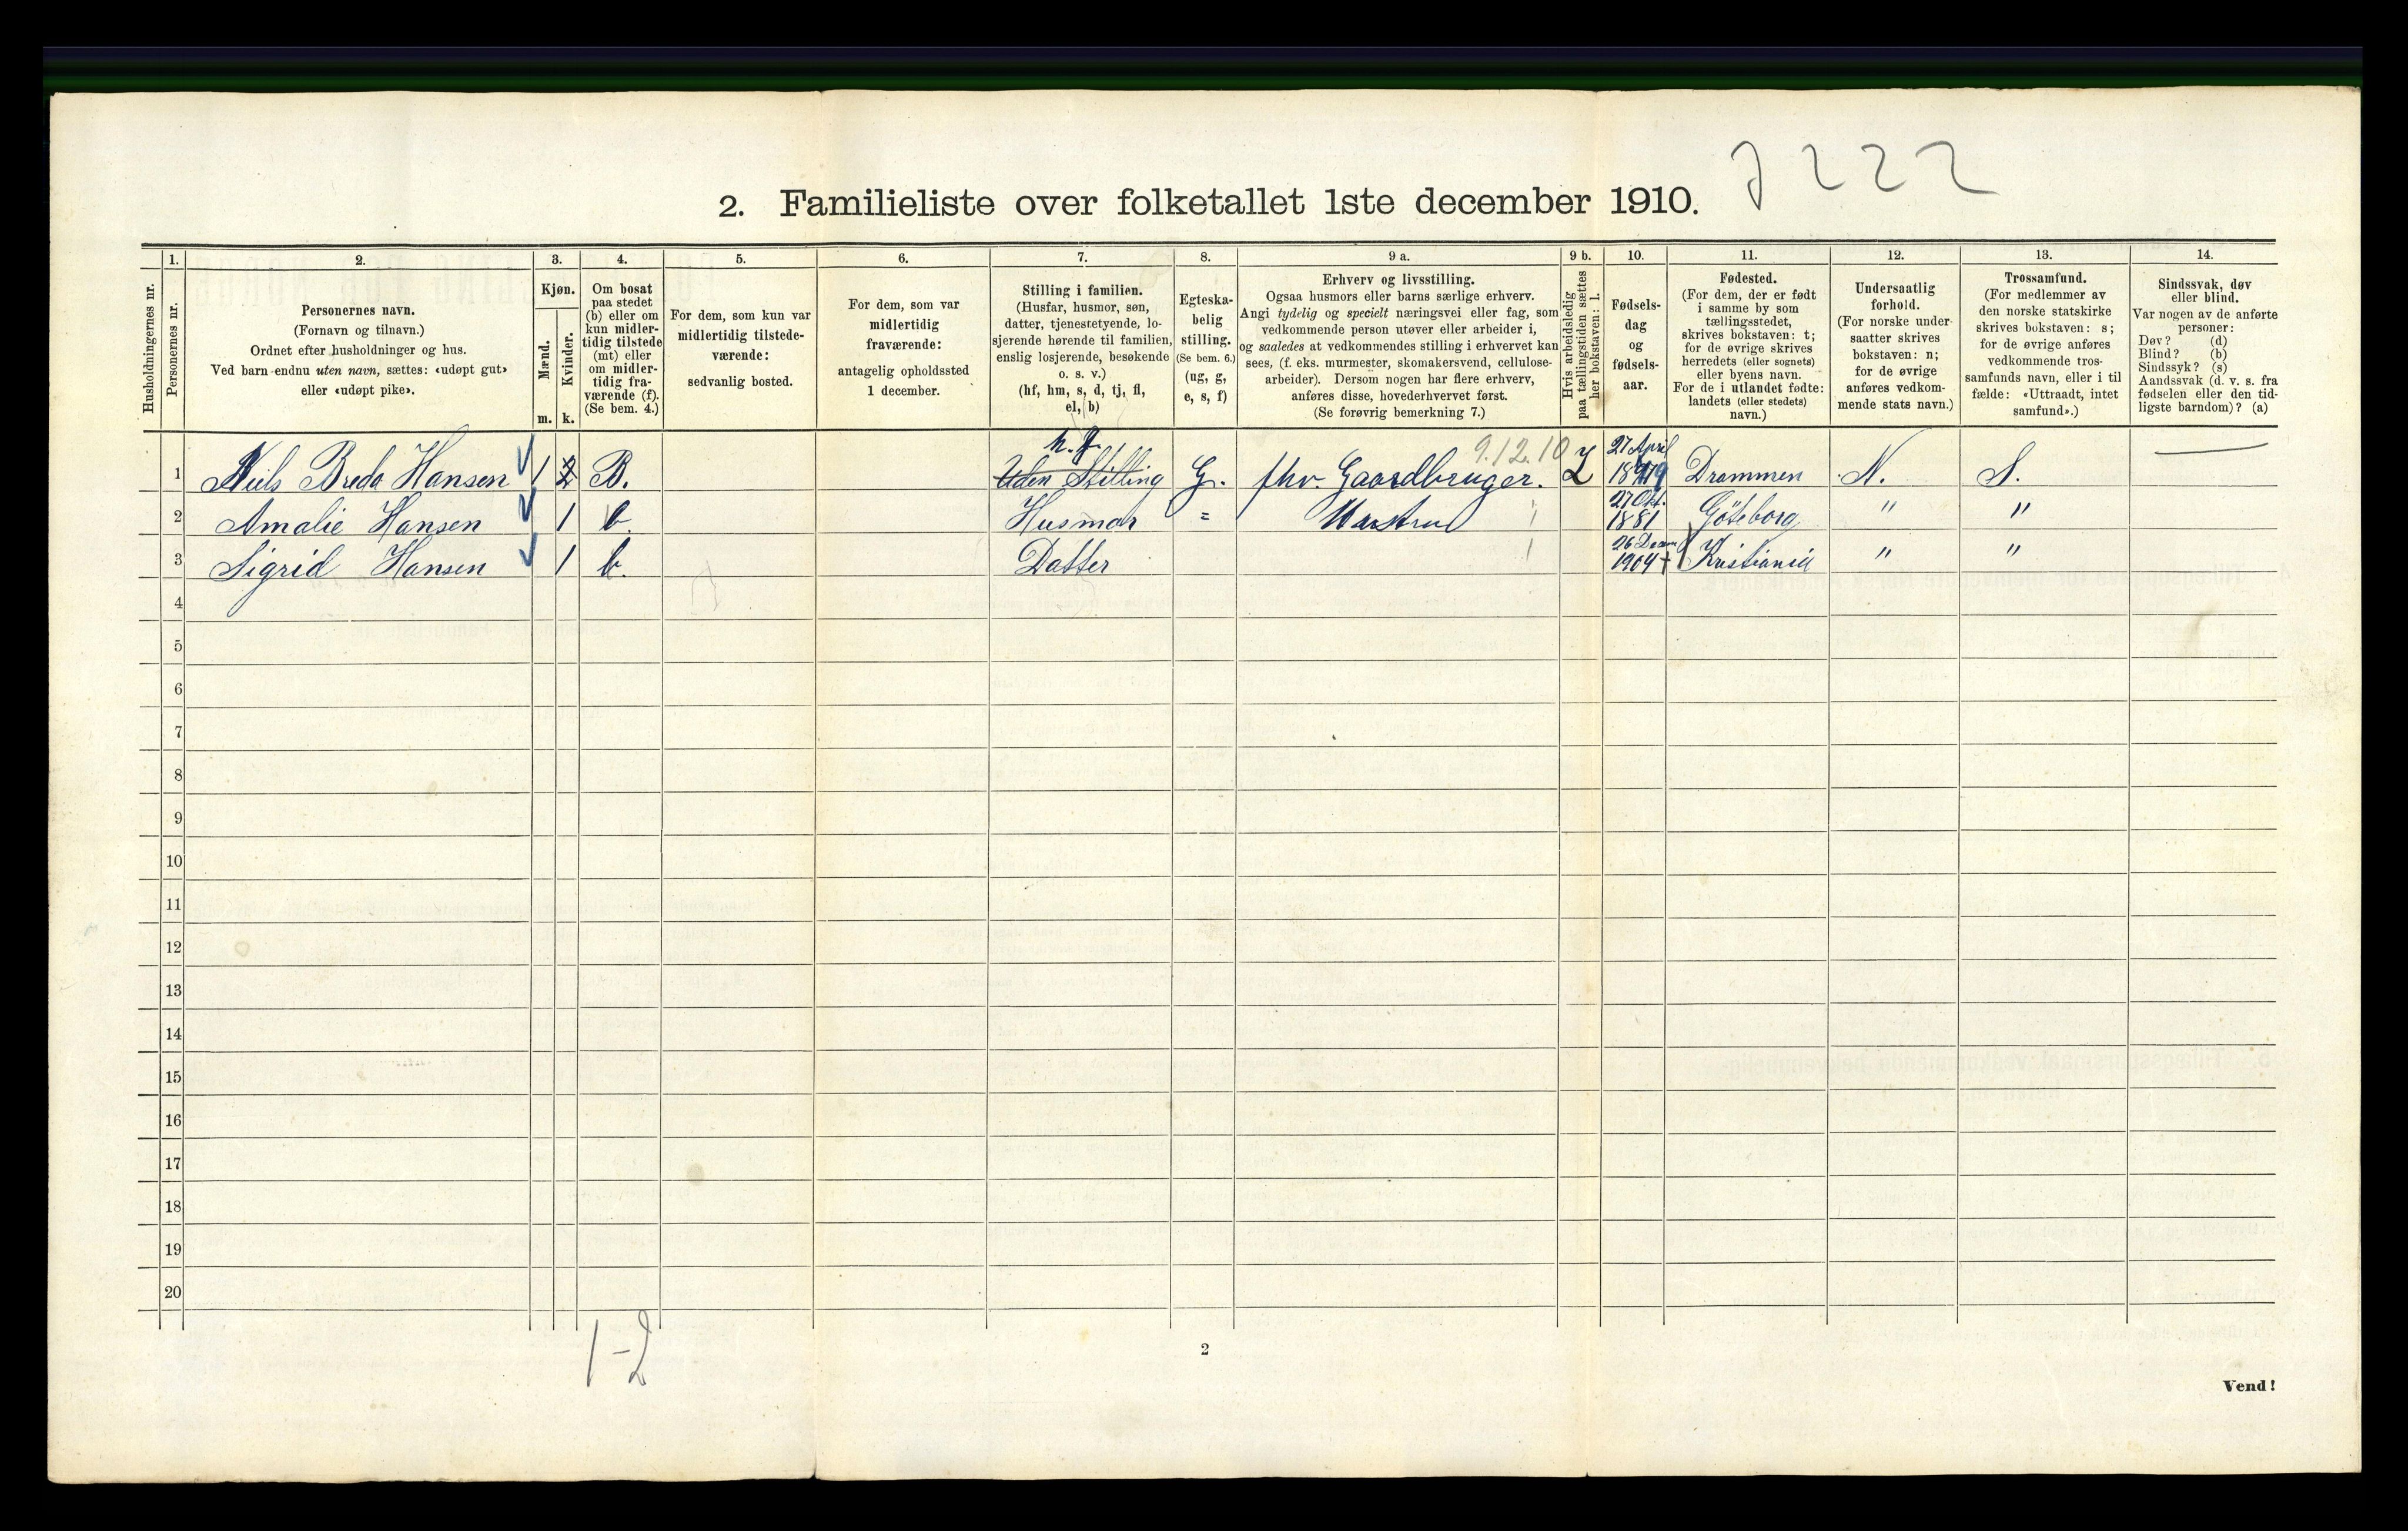 7222
2. Familieliste over folketallet 1ste december 1910.
Husholdningernes nr.
1. Personernes nr.
2. Personernes navn.
(Fornavn og tilnavn.)
Ordnet efter husholdninger og hus.
Ved barn endnu uten navn, sættes: «udøpt gut»
eller «udøpt pike».
3. Kjøn.
Mænd. Kvinder.
m. k.
4. Om bosat
paa stedet
(b) eller om
kun midler-
tidig tilstede
(mt) eller
om midler-
tidig fra-
værende (f).
(Se bem. 4.)
5. For dem, som kun var
midlertidig tilstede-
værende:
sedvanlig bosted.
6. For dem, som var
midlertidig
fraværende:
antagelig opholdssted
1 december.
7. Stilling i familien.
(Husfar, husmor, søn,
datter, tjenestetyende, lo-
sjerende hørende til familien,
enslig losjerende, besøkende
o. s. v.)
(hf, hm, s, d, tj, fl,
el, b)
8. Egteska-
belig
stilling.
(Se bem. 6.)
(ug, g,
e, s, f)
9 a. Erhverv og livsstilling.
Ogsaa husmors eller barns særlige erhverv.
Angi tydelig og specielt næringsvei eller fag, som
vedkommende person utøver eller arbeider i,
og saaledes at vedkommendes stilling i erhvervet kan
sees, (f. eks. murmester, skomakersvend, cellulose-
arbeider). Dersom nogen har flere erhverv,
anføres disse, hovederhvervet først.
(Se forøvrig bemerkning 7.)
9 b. Hvis arbeidsledig
paa tællingstiden sættes
her bokstaven: l.
10. Fødsels-
dag
og
fødsels-
aar.
11. Fødested.
(For dem, der er født
i samme by som
tællingsstedet,
skrives bokstaven: t;
for de øvrige skrives
herredets (eller sognets)
eller byens navn.
For de i utlandet fødte:
landets (eller stedets)
navn.)
12. Undersaatlig
forhold.
(For norske under-
saatter skrives
bokstaven: n;
for de øvrige
anføres vedkom-
mende stats navn.)
13. Trossamfund.
(For medlemmer av
den norske statskirke
skrives bokstaven: s;
for de øvrige anføres
vedkommende tros-
samfunds navn, eller i til
fælde: «Uttraadt, intet
samfund».)
14. Sindssvak, døv
eller blind.
Var nogen av de anførte
personer:
Døv? (d)
Blind? (b)
Sindssyk? (s)
Aandssvak (d. v. s. fra
fødselen eller den tid-
ligste barndom)? (a)
h.f. 9.12.10 27 April
1 Niels Breda Hansen 1 2 B. Uden Stilling G. fhv. Gaardbruger. L 1879 Drammen N. S. —
27 Okt.
2 Amalie Hansen 1 b. Husmor " 1 1881 Göteborg " "
26 Decem
3 Sigrid Hansen 1 b. Datter 1 1904 + Kristiania " "
4
5
6
7
8
9
10
11
12
13
14
15
16
17
18
19
20
1-2
2
Vend!